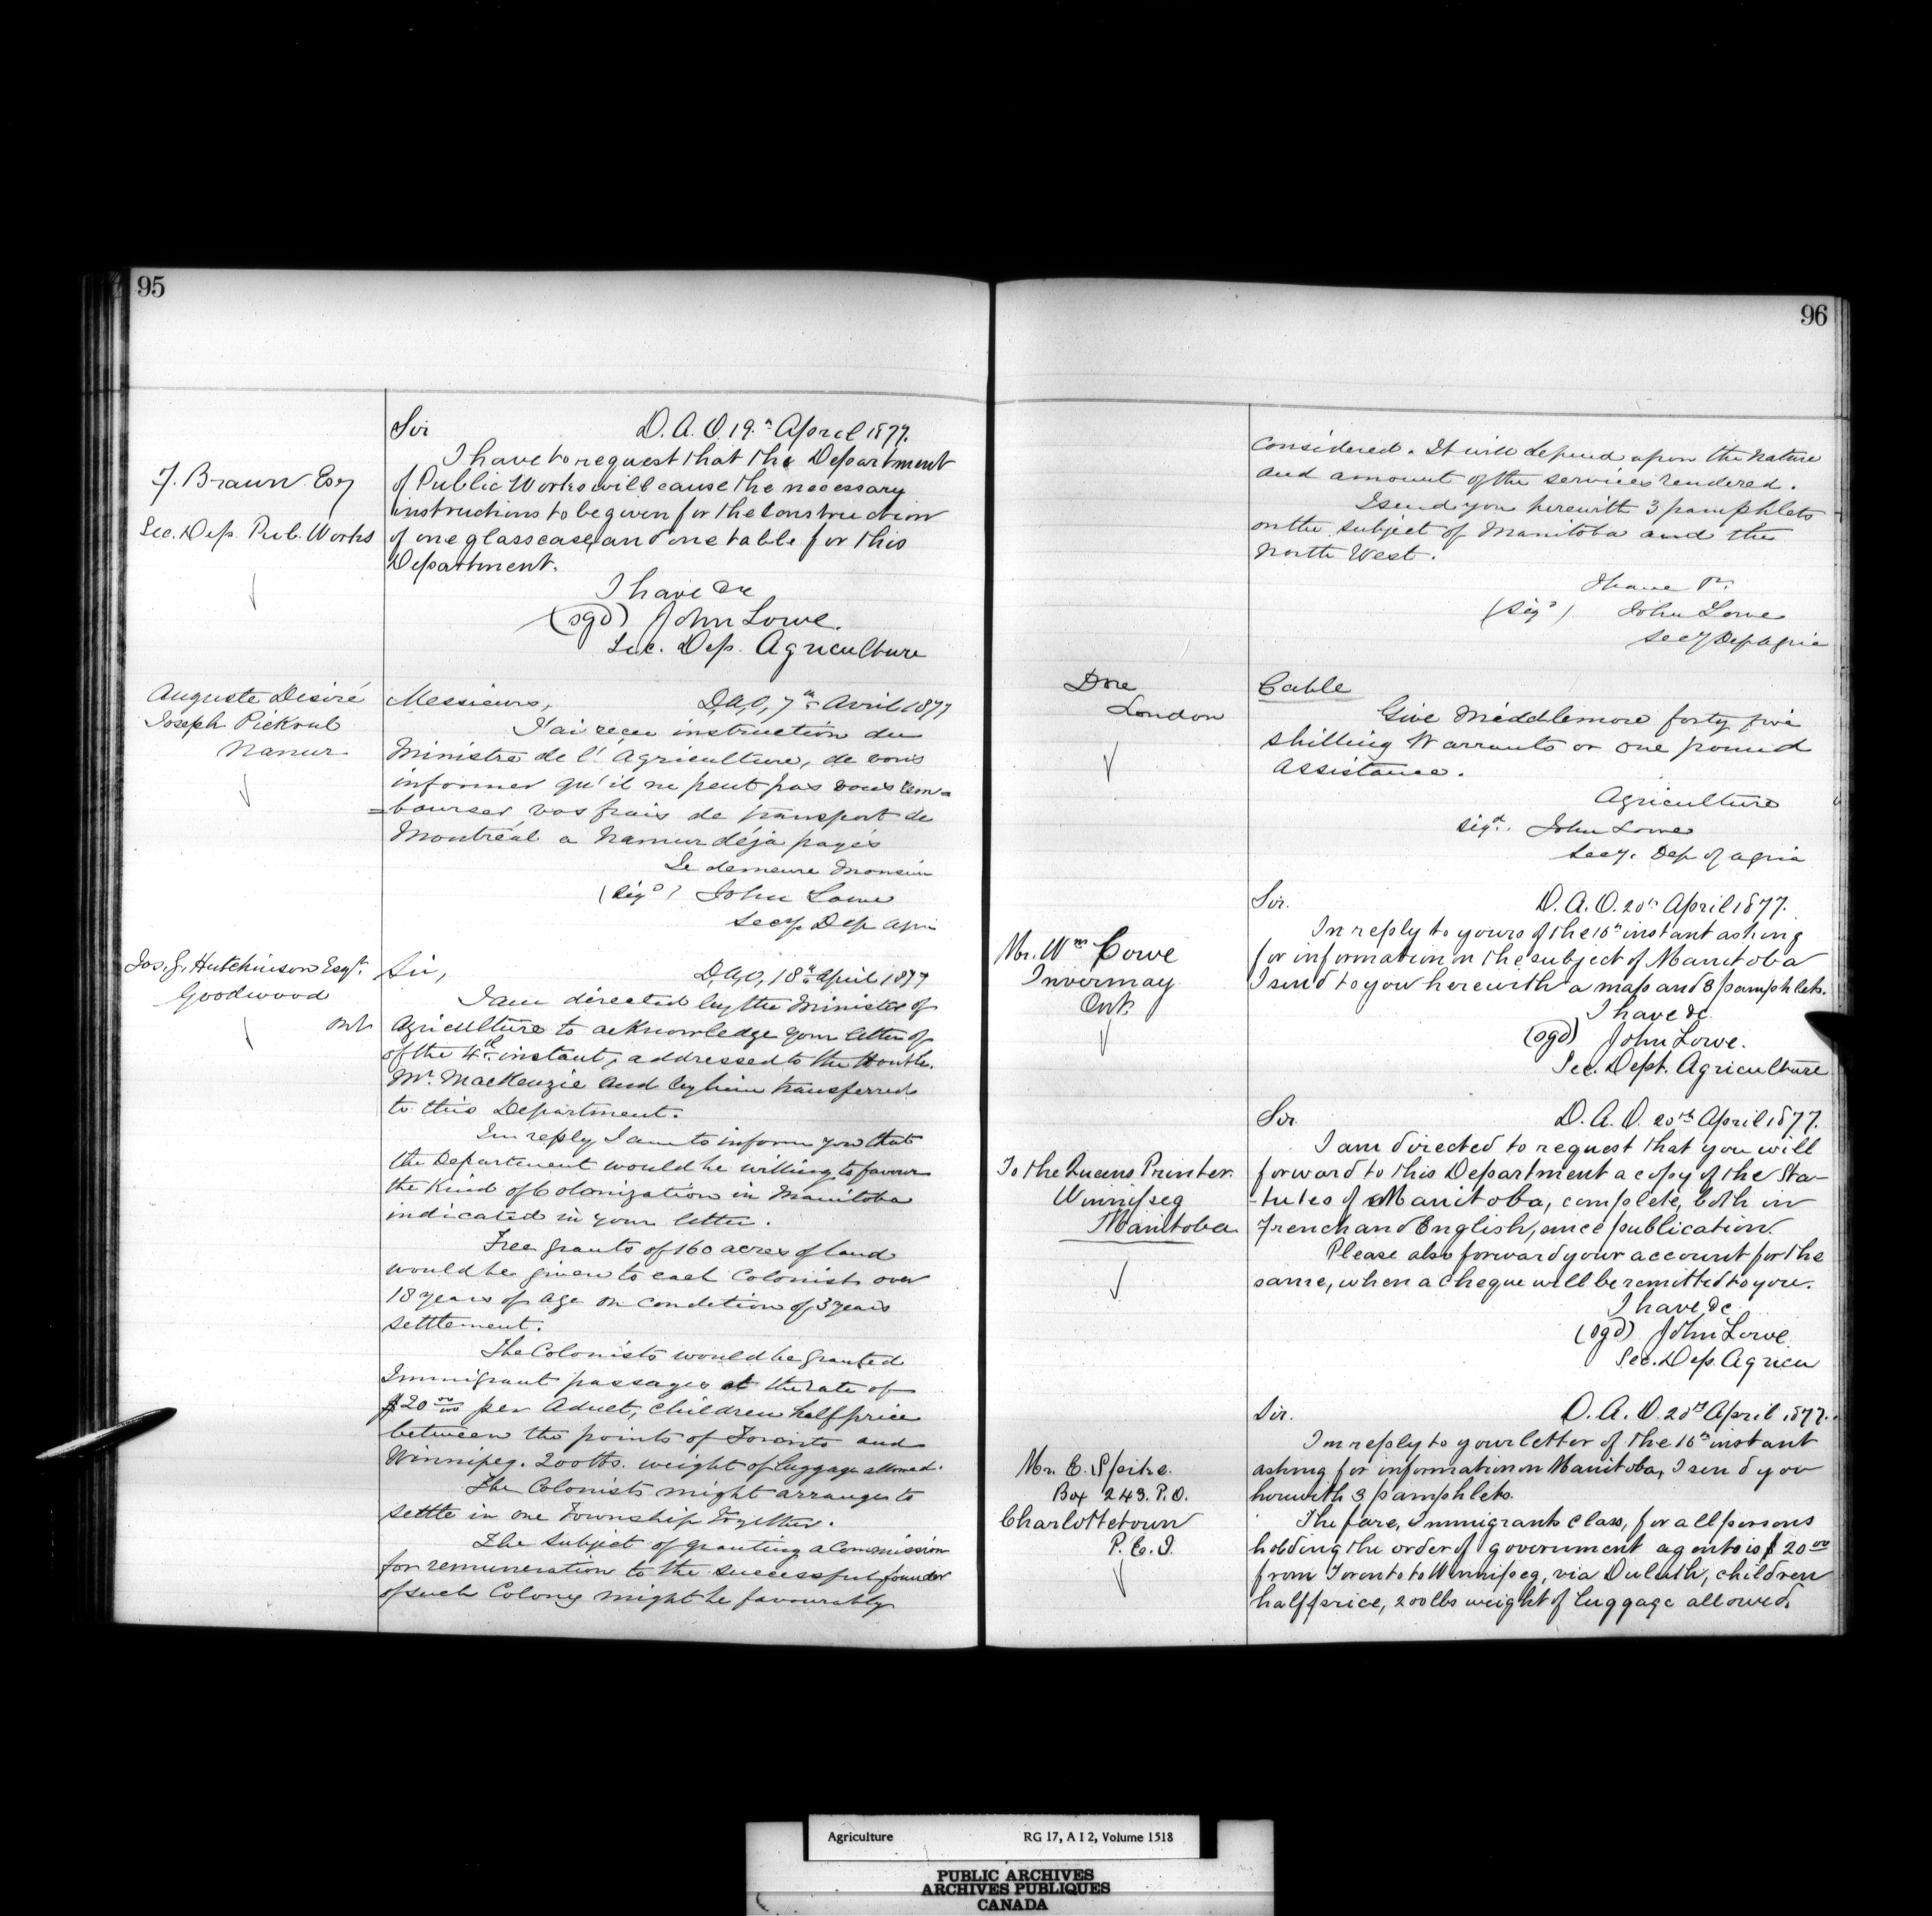 95
F. Braun Esq
Sec. Dep. Pub. Works
Sir D. A. O. 19th April 1877.
I have to request that the Department
of Public Works will cause the necessary
instructions to be given for the construction
of one glass case, and one table for this
Department.
I have &c
(sgd) John Lowe.
Sec. Dep. Agriculture
Auguste Desiré
Joseph
Namur
Messieurs, D,A,O, 7th Avril 1877
J'ai recu instruction du
Ministre de l'Agriculture, de vous
informer qu'il ne peut pas vous rem=
=bourser vos frais de transport de
Montréal a Namur déjà payés
Je demeure Monsieur
(Sigd) John Lowe
Secy Dep Agri
Jos. J. Hutchinson Esqr.
Goodwood
Ont
Sir, D,A,O, 18th April 1877
I am directed by the Minister of
Agriculture to acknowledge your letter of
of the 4th instant, addressed to the Honble.
Mr. MacKenzie and by him transferred
to this Department.
In reply I am to inform you that
the Department would be willing to favour
the kind of Colonization in Manitoba
indicated in your letter.
Free grants of 160 acres of land
would be given to each Colonist over
18 years of age on condition of 3 years
settlement.
The Colonists would be granted
Immigrant passages at the rate of
$20 00/100 per Adult, children half price
between the points of Toronto and
Winnipeg. 200 lbs. weight of luggage allowed.
The Colonists might arrange to
settle in one Township together.
The subject of granting a Commission
for remuneration to the successful founder
of such Colony might be favourably
96
considered. It will depend upon the nature
and amount of the services rendered.
I send you herewith 3 pamphlets
on the subject of Manitoba and the
North West.
I have &c.
(Sigd) John Lowe
Secy Dep Agric
Dore
London
Cable
Give Middlemore forty five
shilling Warrants or one pound
assistance.
Agriculture
Sigd. John Lowe
Secy. Dep of Agric
Mr. Wm Cowe
Invermay
Ont.
Sir. D. A. O. 20th April 1877.
In reply to yours of the 16th instant asking
for information on the subject of Manitoba
I send to you herewith a map and 8 pamphlets.
I have &c
(sgd) John Lowe.
Sec. Dept. Agriculture
To the Queens Printer
Winnipeg
Manitoba
Sir D. A. O. 20th April 1877.
I am directed to request that you will
forward to this Department a copy of the Sta-
-tutes of Manitoba, complete, both in
French and English, since publication.
Please also forward your account for the
same, when a cheque will be remitted to you.
I have &c
(sgd) John Lowe
Sec. Dep. Agricu
Mr. C. Spike.
Box 243. P.O.
Charlottetown
P. E. I.
Sir. D. A. O. 20th April 1877.
In reply to your letter of the 16th instant
asking for information on Manitoba, I send you
herewith 3 pamphlets.
The fare, Immigrants class, for all persons
holding the order of government agents is $20 00
from Toronto to Winnipeg, via Duluth, children
half price, 200 lbs weight of luggage allowed.
Agriculture RG 17, A I 2, Volume 1518
PUBLIC ARCHIVES
ARCHIVES PUBLIQUES
CANADA